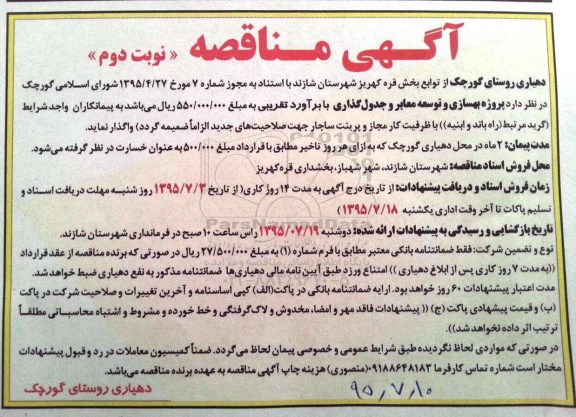 آگهی مناقصه « نوبت دوم »
دهیاری روستای گورچک از توابع بخش قره کهریز شهرستان شازند با استناد به مجوز شماره ۷ مورخ ۱۳۹۵/۴/۲۷ شورای اسلامی گورچک
در نظر دارد پروژه بهسازی و توسعه معابر و جدول‌گذاری با برآورد تقریبی به مبلغ ۵۵۰/۰۰۰/۰۰۰ ریال می‌باشد به پیمانکاران واجد شرایط
(گرید مرتبط (راه باند و ابنیه)) با ظرفیت کار مجاز و پرینت ساجار جهت صلاحیت‌های جدید الزاماً ضمیمه گردد) واگذار نماید.
مدت پیمان: ۲ ماه در محل دهیاری گورچک که به ازای هر روز تاخیر مطابق با قرارداد مبلغ ۵۰۰/۰۰۰ به عنوان خسارت در نظر گرفته می‌شود.
محل فروش اسناد مناقصه: شهرستان شازند، شهر شهباز، بخشداری قره‌کهریز
زمان فروش اسناد و دریافت پیشنهادات: از تاریخ درج آگهی به مدت ۱۴ روز کاری( از تاریخ ۱۳۹۵/۷/۳ روز شنبه مهلت دریافت اسناد و
تسلیم پاکات تا آخر وقت اداری یکشنبه ۱۳۹۵/۷/۱۸)
تاریخ بازگشایی و رسیدگی به پیشنهادات ارائه شده: دوشنبه ۱۳۹۵/۰۷/۱۹ راس ساعت ۱۰ صبح در فرمانداری شهرستان شازند.
نوع و تضمین شرکت: فقط ضمانتنامه بانکی معتبر مطابق با فرم شماره (۱) به مبلغ ۲۷/۵۰۰/۰۰۰ ریال در صورتی که برنده مناقصه از عقد قرارداد
((به مدت ۷ روز کاری پس از ابلاغ دهیاری )) امتناع ورزد طبق آیین نامه مالی دهیاری‌ها ضمانتنامه مذکور به نفع دهیاری ضبط خواهد شد.
مدت اعتبار پیشنهادات ۶۰ روز خواهد بود. ارایه ضمانتنامه بانکی در پاکت(الف) کپی اساسنامه و آخرین تغییرات و صلاحیت شرکت در پاکت
(ب) و قیمت پیشهادی پاکت (ج) (( پیشنهادات فاقد مهر و امضا، مخدوش و لاک‌گرفتگی و خط خورده و مشروط و اشتباه محاسباتی مطلقاً
ترتیب اثر داده نخواهد شد)).
در صورتی که مواردی لحاظ نگردیده طبق شرایط عمومی و خصوصی پیمان لحاظ می‌گردد. ضمناً کمیسیون معاملات در رد و قبول پیشنهادات
مختار است شماره تماس کارفرما ۰۹۱۸۸۶۴۸۱۸۳(منصوری) هزینه چاپ آگهی مناقصه به عهده برنده مناقصه می‌باشد.
دهیاری روستای گورچک
۹۵,۷,۱۰